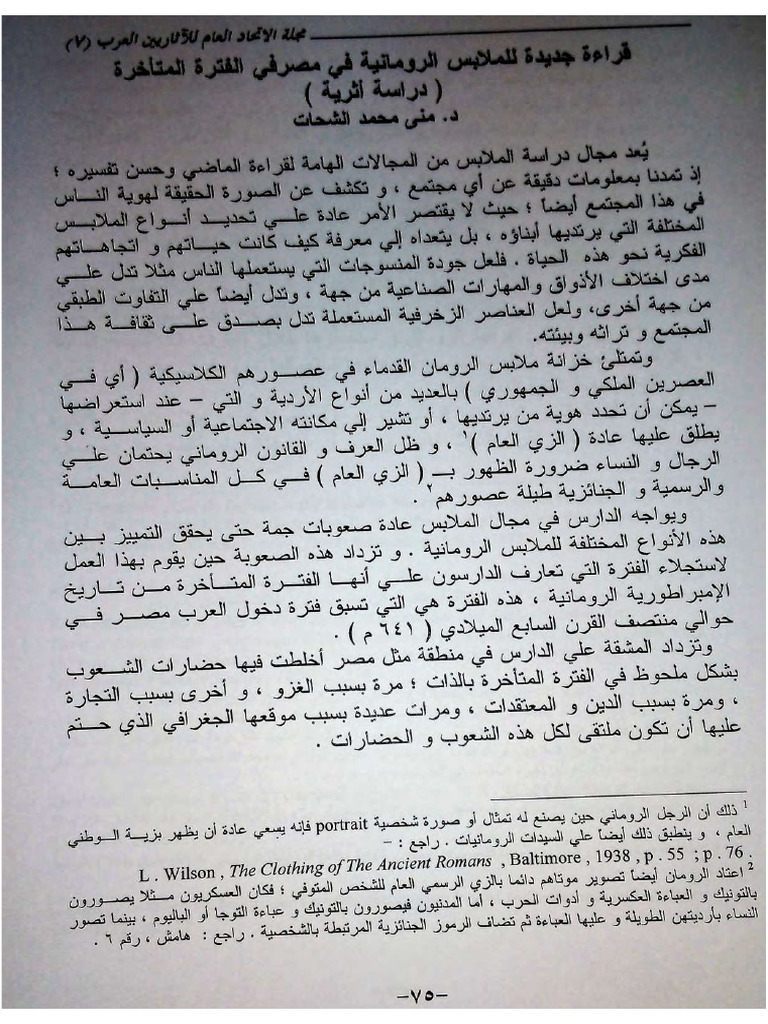 مجلة الاتحاد العام للآثاريين العرب (٧)
قراءة جديدة للملابس الرومانية في مصرفي الفترة المتأخرة
( دراسة أثرية )
د. منى محمد الشحات
يُعد مجال دراسة الملابس من المجالات الهامة لقراءة الماضي وحسن تفسيره ؛
إذ تمدنا بمعلومات دقيقة عن أي مجتمع ، و تكشف عن الصورة الحقيقة لهوية الناس
في هذا المجتمع أيضاً ؛ حيث لا يقتصر الأمر عادة علي تحديد أنواع الملابس
المختلفة التي يرتديها أبناؤه ، بل يتعداه إلي معرفة كيف كانت حياتهم و اتجاهاتهم
الفكرية نحو هذه الحياة . فلعل جودة المنسوجات التي يستعملها الناس مثلا تدل علي
مدى اختلاف الأذواق والمهارات الصناعية من جهة ، وتدل أيضاً علي التفاوت الطبقي
من جهة أخرى، ولعل العناصر الزخرفية المستعملة تدل بصدق على ثقافة هذا
المجتمع و تراثه وبيئته.
وتمتلئ خزانة ملابس الرومان القدماء في عصورهم الكلاسيكية ( أي في
العصرين الملكي و الجمهوري ) بالعديد من أنواع الأردية و التي – عند استعراضها
– يمكن أن تحدد هوية من يرتديها ، أو تشير إلي مكانته الاجتماعية أو السياسية ، و
يطلق عليها عادة ( الزي العام )١ ، و ظل العرف و القانون الروماني يحتمان علي
الرجال و النساء ضرورة الظهور بـ ( الزي العام ) في كل المناسبات العامة
والرسمية و الجنائزية طيلة عصورهم٢ .
ويواجه الدارس في مجال الملابس عادة صعوبات جمة حتى يحقق التمييز بين
هذه الأنواع المختلفة للملابس الرومانية . و تزداد هذه الصعوبة حين يقوم بهذا العمل
لاستجلاء الفترة التي تعارف الدارسون علي أنها الفترة المتأخرة من تاريخ
الإمبراطورية الرومانية ، هذه الفترة هي التي تسبق فترة دخول العرب مصر في
حوالي منتصف القرن السابع الميلادي ( ٦٤١ م ) .
وتزداد المشقة علي الدارس في منطقة مثل مصر أخلطت فيها حضارات الشعوب
بشكل ملحوظ في الفترة المتأخرة بالذات ؛ مرة بسبب الغزو ، و أخرى بسبب التجارة
، ومرة بسبب الدين و المعتقدات ، ومرات عديدة بسبب موقعها الجغرافي الذي حتم
عليها أن تكون ملتقى لكل هذه الشعوب و الحضارات .
١ ذلك أن الرجل الروماني حين يصنع له تمثال أو صورة شخصية portrait فإنه يسعي عادة أن يظهر بزية الوطني
العام ، و ينطبق ذلك أيضاً علي السيدات الرومانيات . راجع : –
L . Wilson , The Clothing of The Ancient Romans , Baltimore , 1938 , p . 55 ; p . 76 .
٢ اعتاد الرومان أيضاً تصوير موتاهم دائما بالزي الرسمي العام للشخص المتوفي ؛ فكان العسكريون مثلا يصورون
بالتونيك و العباءة العسكرية و أدوات الحرب ، أما المدنيون فيصورون بالتونيك و عباءة التوجا أو الباليوم ، بينما تصور
النساء بأرديتهن الطويلة و عليها العباءة ثم تضاف الرموز الجنائزية المرتبطة بالشخصية . راجع : هامش ، رقم ٦ .
–٧٥–